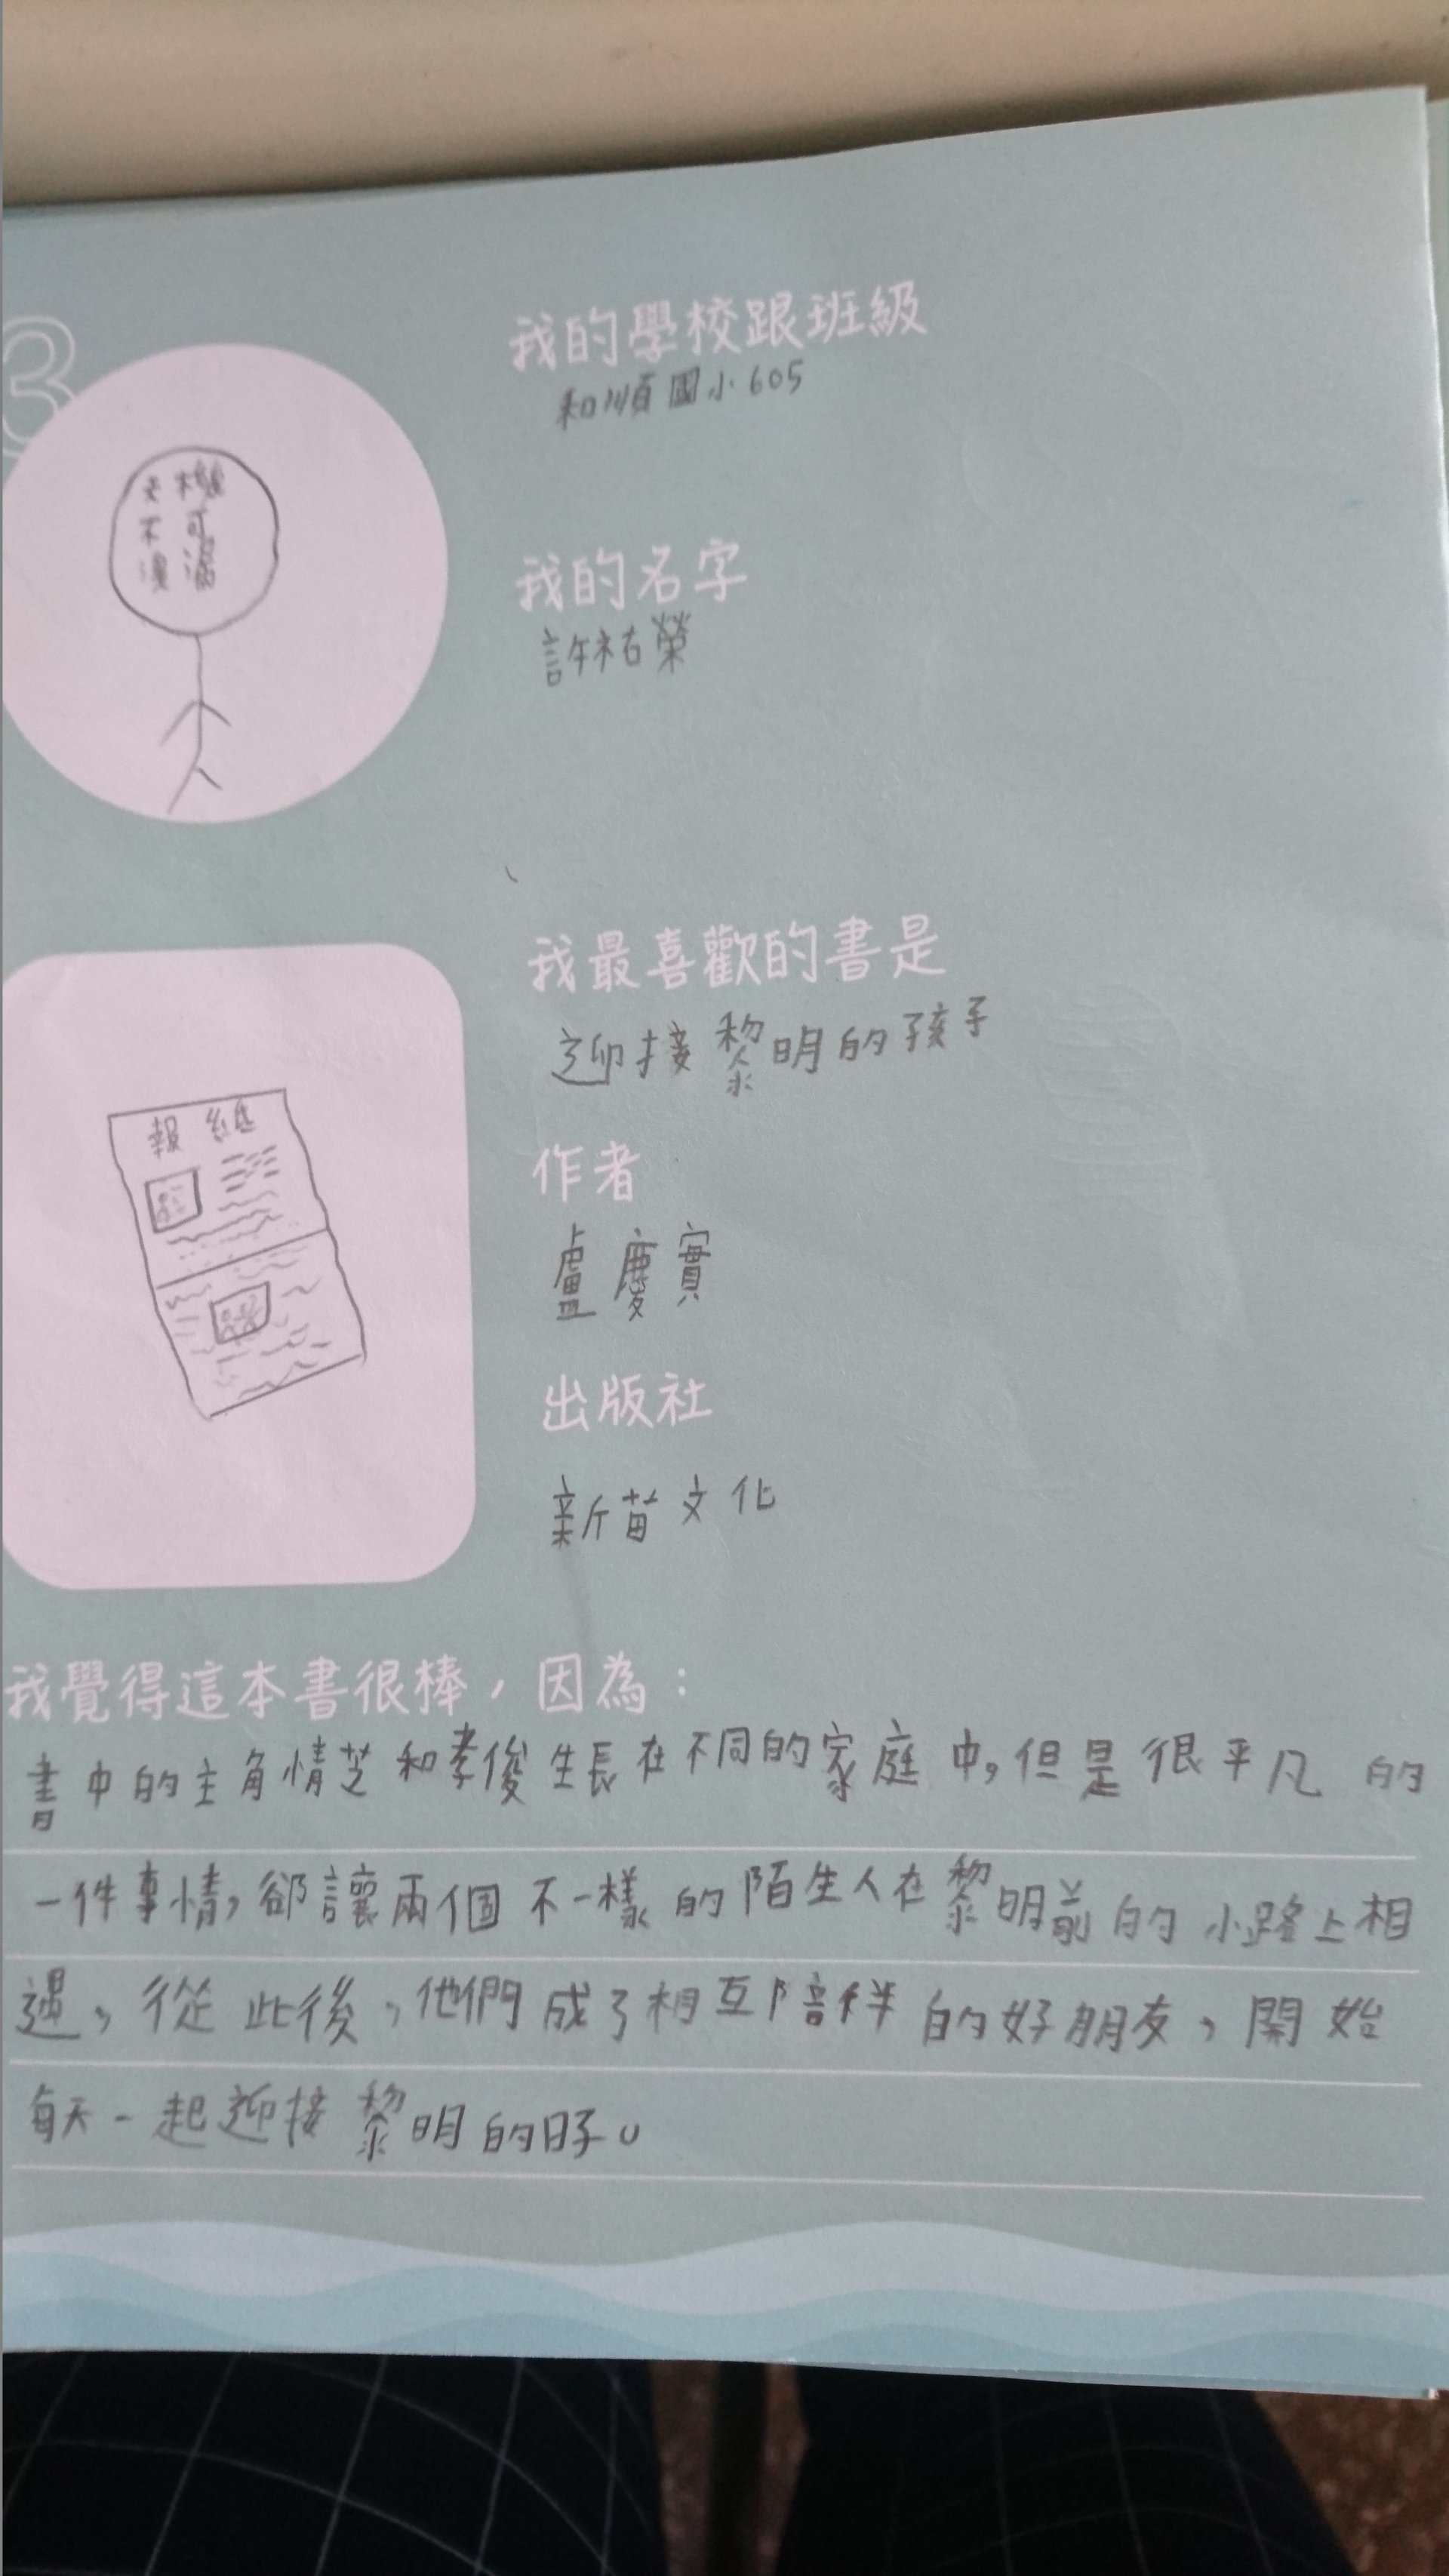 3
我的學校跟班級
和順國小605
我的名字
許祐榮
我最喜歡的書是
迎接黎明的孩子
報紙
作者
盧慶實
出版社
新苗文化
我覺得這本書很棒，因為：
書中的主角情芝和孝俊生長在不同的家庭中,但是很平凡的
一件事情,卻讓兩個不一樣的陌生人在黎明前的小路上相
遇,從此後,他們成了相互陪伴的好朋友,開始
每天一起迎接黎明的日子。